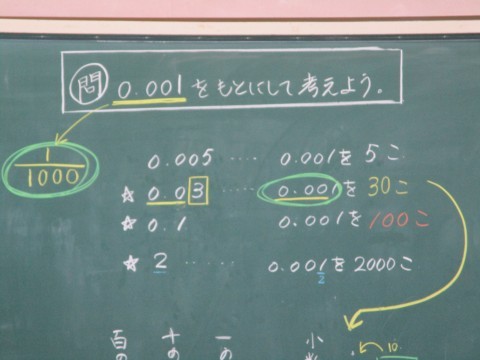 問 0.001をもとにして考えよう。
1/1000
0.005 ・・・・ 0.001を 5こ
☆ 0.03 ・・・・ 0.001を 30こ
☆ 0.1 0.001を 100こ
☆ 2 0.001を 2000こ
2
百の 十の 一の 小 10